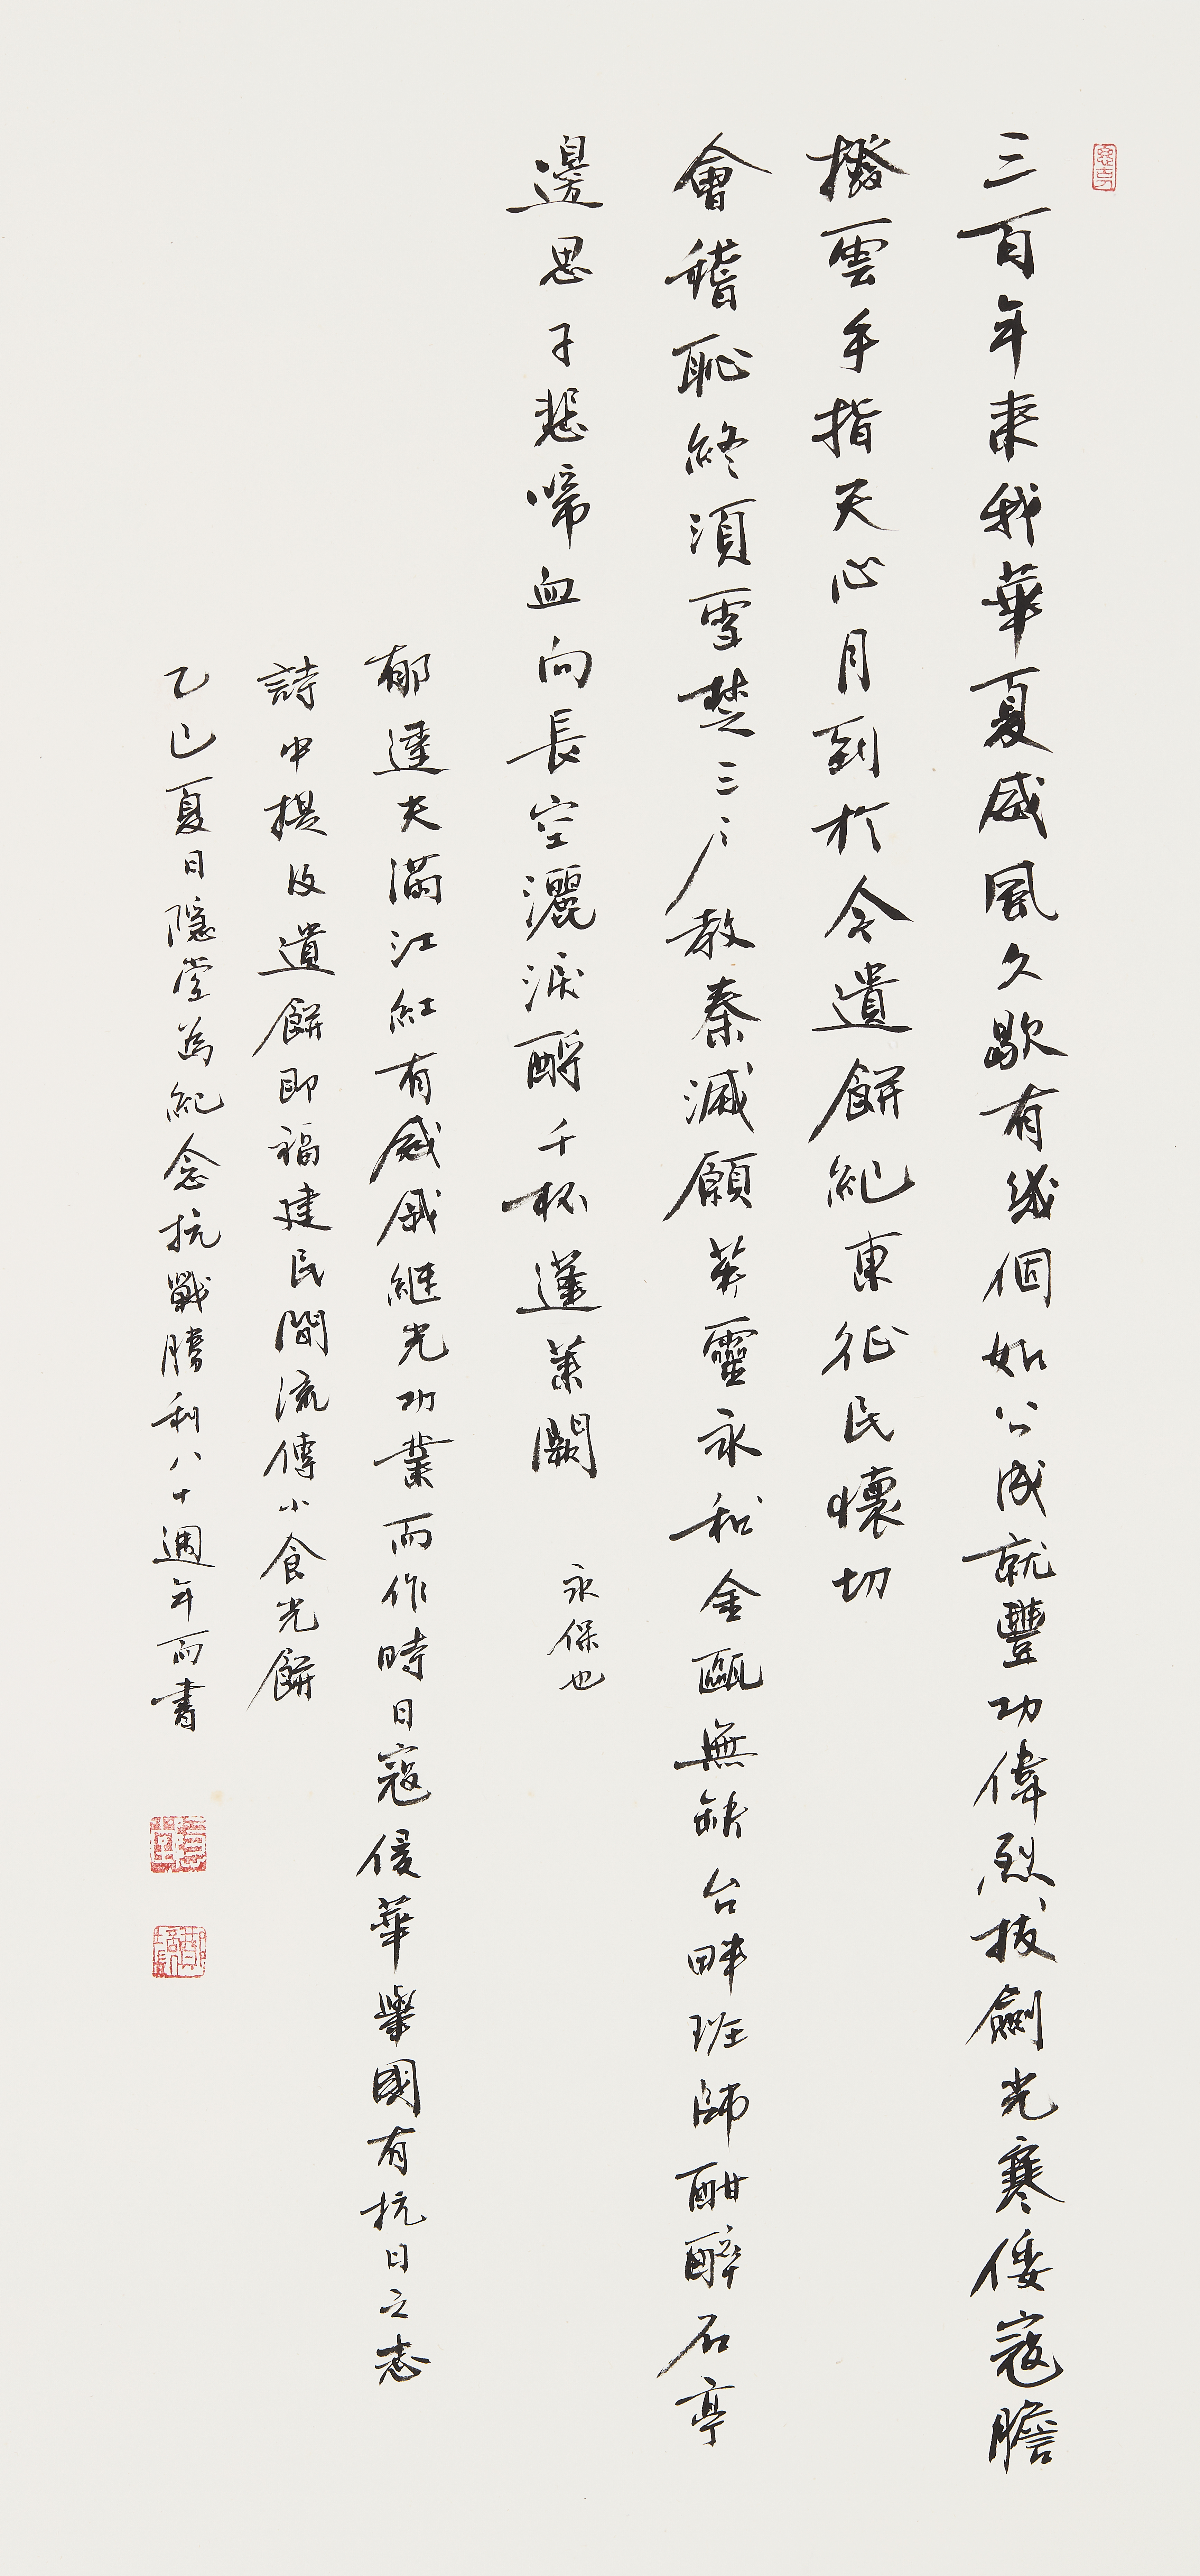 三百年來我華夏威風久歇有幾個如公成就豐功偉烈拔劍光寒倭寇膽
撥雲手指天心月到於今遺餅紀東征民懷切
會稽恥終須雪楚三户教秦滅願英靈永和金甌無缺台畔班師酣醉石亭
邊思子悲啼血向長空灑淚酹千杯蓬萊闕 永保也
郁達夫滿江紅有感戚継光功業而作時日寇侵華舉國有抗日之志
詩中提及遺餅即福建民間流傳小食光餅
乙巳夏日隱堂為紀念抗戰勝利八十週年而書